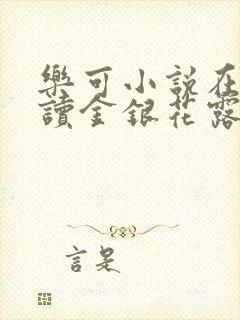 樂可小說在
讀金銀花露
言是